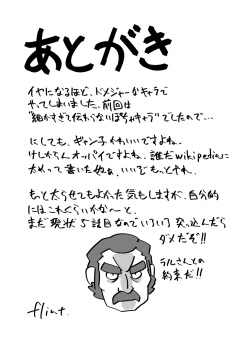 あとがき
イヤになるほど、ドメジャーなキャラで
やってしまいました。前回は
"細かすぎて伝わらないぽちゃキャラ"でしたので…
にしても、ギャン子かわいいですよね。
けしからんオッパイですよね。誰だwikipediaに
って書いた奴ぁ。いいぞもっとやれ。
もっと太らせてもよかった気もしますが、自分的
にはこれくらいかな〜と。
まだ現状5話目なのでいろいろ突っ込んだら
ダメだぞ!!
ラルさんとの
約束だ!!
flint.